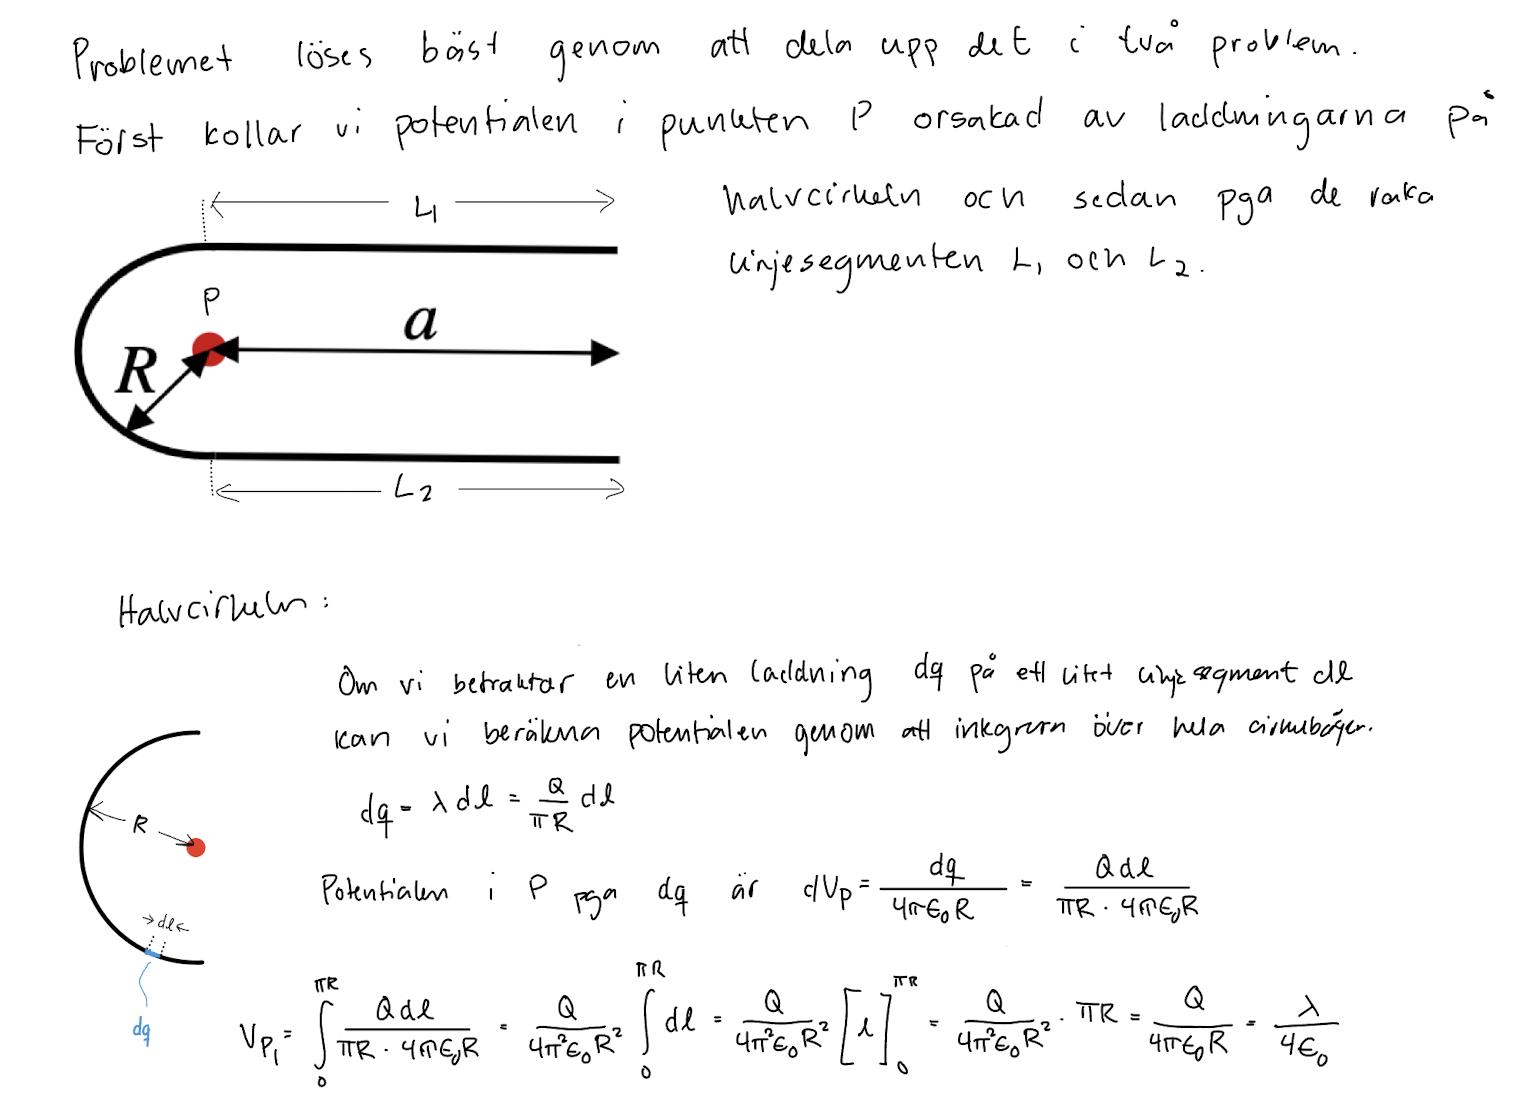 Problemet löses bäst genom att dela upp det i två problem.
Först kollar vi potentialen i punkten P orsakad av laddningarna på
halvcirkeln och sedan pga de raka
linjesegmenten L₁ och L₂.
L₁
P
a
R
L₂
Halvcirkeln:
Om vi betraktar en liten laddning dq på ett litet linjesegment dl
kan vi beräkna potentialen genom att integrera över hela cirkelbågen.
dq = λ dl = Q/(πR) dl
R
Potentialen i P pga dq är dVp = dq/(4πϵ₀R) = Q dl/(πR · 4πϵ₀R)
→dl←
dq
V_P₁ = ∫₀^πR Q dl/(πR · 4πϵ₀R) = Q/(4π²ϵ₀R²) ∫₀^πR dl = Q/(4π²ϵ₀R²) [l]₀^πR = Q/(4π²ϵ₀R²) · πR = Q/(4πϵ₀R) = λ/(4ϵ₀)